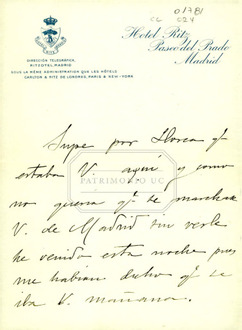 01781
Hotel Ritz
Paseo del Prado
Madrid
DIRECCIÓN TELEGRÁFICA,
RITZOTEL, MADRID
SOUS LA MÊME ADMINISTRATION QUE LES HÔTELS
CARLTON & RITZ DE LONDRES, PARIS & NEW-YORK
Supe por Llorca qe
estaba V. aquí y como
no quería qe se marchar
V. de Madrid sin verle
he venido esta noche pues
me habían dicho qe se
iba V. mañana.
PATRIMONIO UC